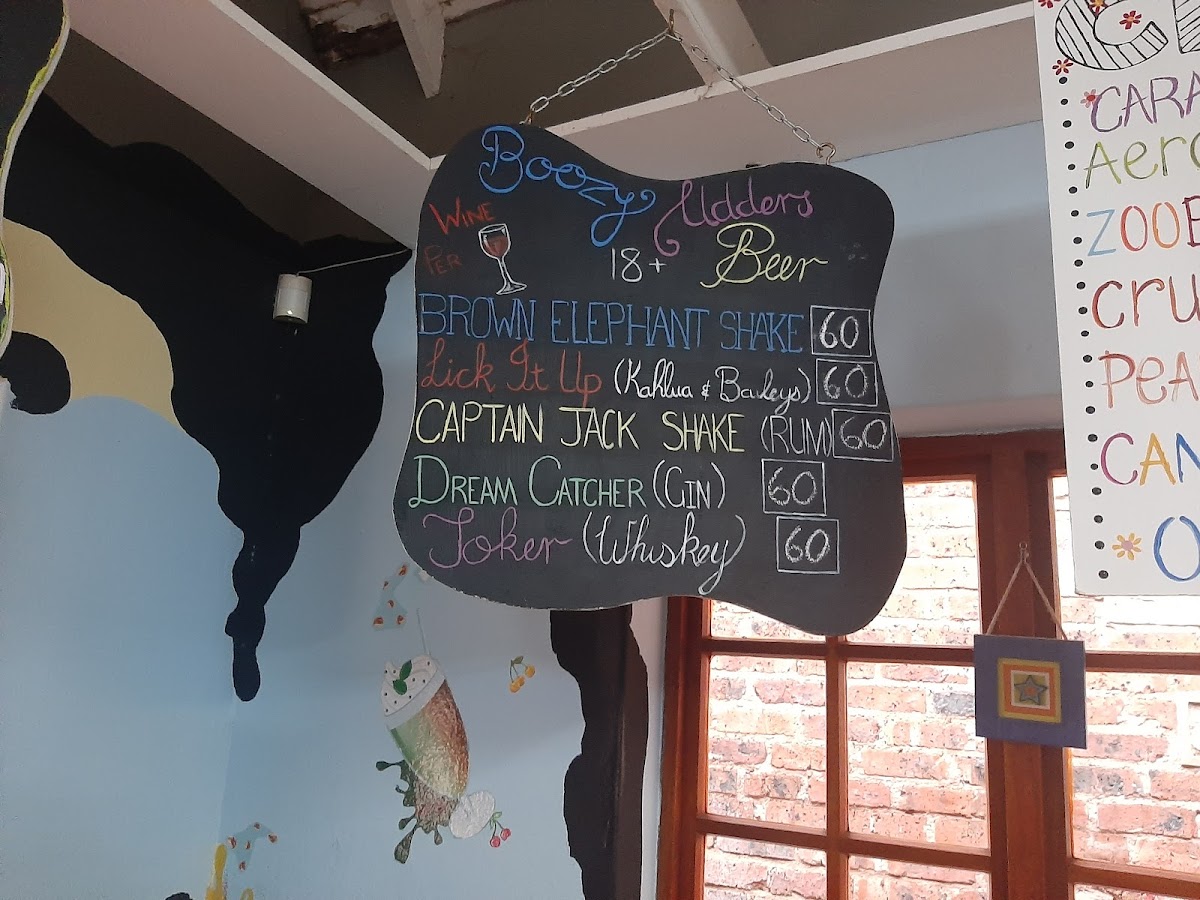 Boozy Udders
WINE
PER
18+
Beer
BROWN ELEPHANT SHAKE 60
Lick It Up (Kahlua & Baileys) 60
CAPTAIN JACK SHAKE (RUM) 60
DREAM CATCHER (GIN) 60
Joker (Whiskey) 60
CARA
Aero
ZOO
CRU
PEA
CAN
O